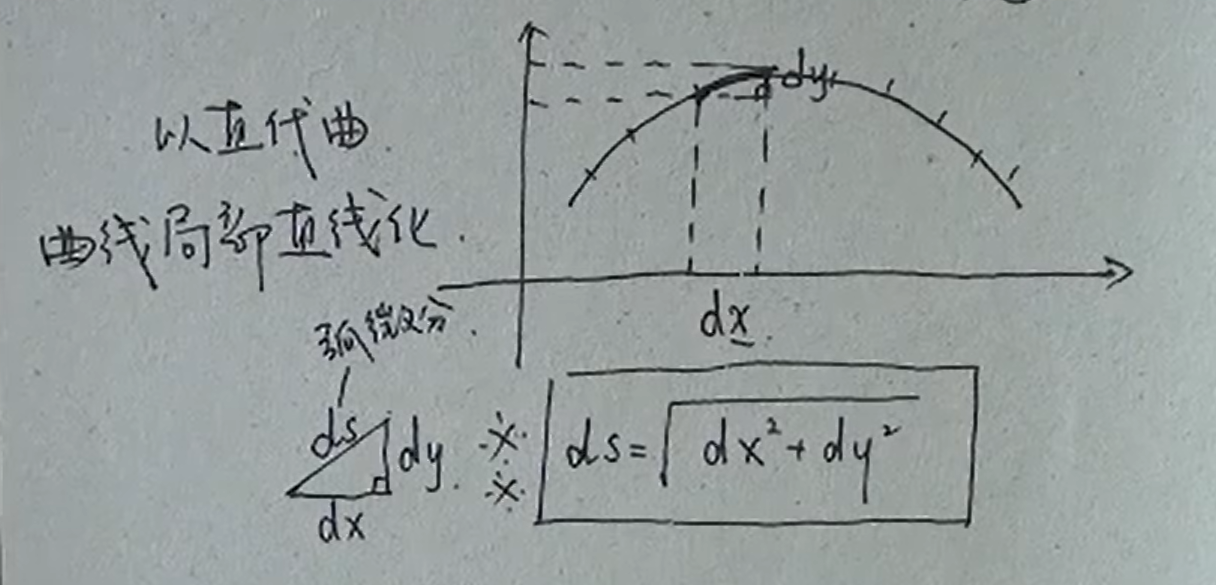 以直代曲
曲线局部直线化.
dy
dx.
弧微分.
ds
dy.
dx
※
※
ds=√(dx²+dy²)